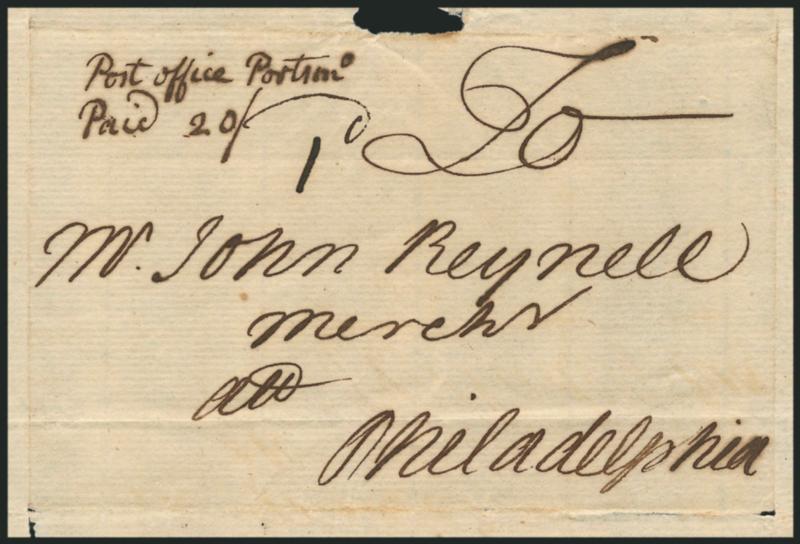 Post office Portsmo
Paid 20/
1d To
Mr. John Reynell
Mercht
att
Philadelphia